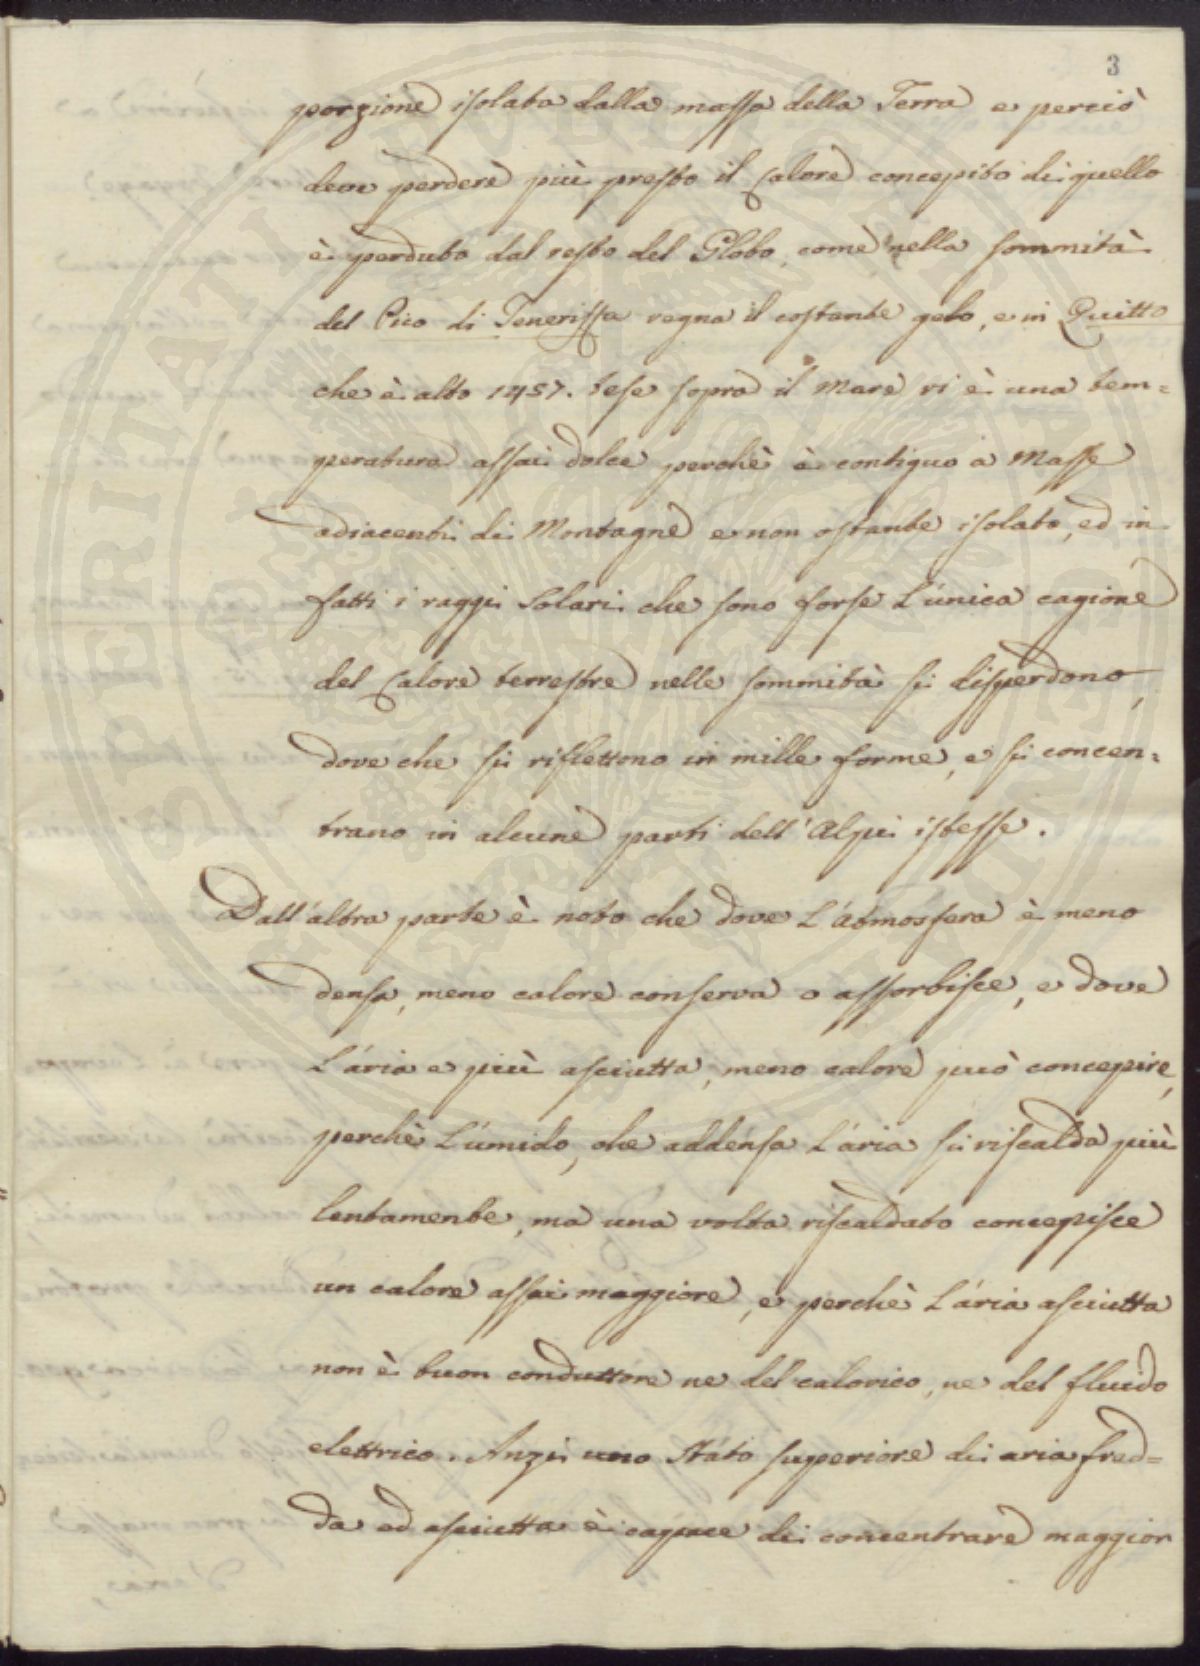 3
porzione isolata dalla massa della Terra e perciò
deve perdere più presto il Calore concepito di quello
è perduto dal resto del Globo, come nella sommità
del Pico di Teneriffa regna il costante gelo, e in Quitto
che è alto 1457. tese sopra il Mare vi è una tem=
peratura assai dolce perchè è contiguo a Masse
adiacenti di Montagne e non ostante isolato, ed in
fatti i raggi Solari che sono forse L'unica cagione
del Calore terrestre nelle sommità si disperdono,
dove che si riflettono in mille forme, e si concen=
trano in alcune parti dell'Alpi istesse.
Dall'altra parte è noto che dove L'atmosfera è meno
densa, meno calore conserva o assorbisce, e dove
L'aria e più asciutta, meno calore può concepire,
perchè L'umido, che addensa L'aria si riscalda più
lentamente, ma una volta riscaldato concepisce
un calore assai maggiore, e perchè L'aria asciutta
non è buon conduttore ne del calorico, ne del fluido
elettrico. Anzi uno Stato superiore di aria fred=
da ed asciutta è capace di concentrare maggior
SPERITATI PUBLICE